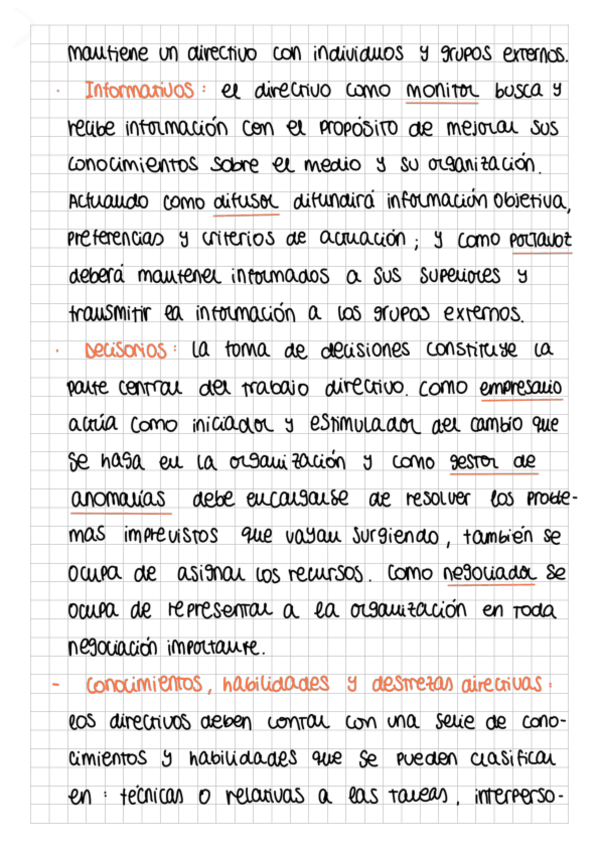 mantiene un directivo con individuos y grupos externos.
· Informativos: el directivo como monitor busca y
recibe información con el propósito de mejorar sus
conocimientos sobre el medio y su organización.
Actuando como difusor difundirá información objetiva,
preferencias y criterios de actuación; y como portavoz
deberá mantener informados a sus superiores y
transmitir la información a los grupos externos.
· Decisorios: la toma de decisiones constituye la
parte central del trabajo directivo. Como empresario
actúa como iniciador y estimulador del cambio que
se haga en la organización y como gestor de
anomalías debe encargarse de resolver los proble-
mas imprevistos que vayan surgiendo, también se
ocupa de asignar los recursos. Como negociador se
ocupa de representar a la organización en toda
negociación importante.
- Conocimientos, habilidades y destrezas directivas:
los directivos deben contar con una serie de cono-
cimientos y habilidades que se pueden clasificar
en: técnicas o relativas a las tareas, interperso-